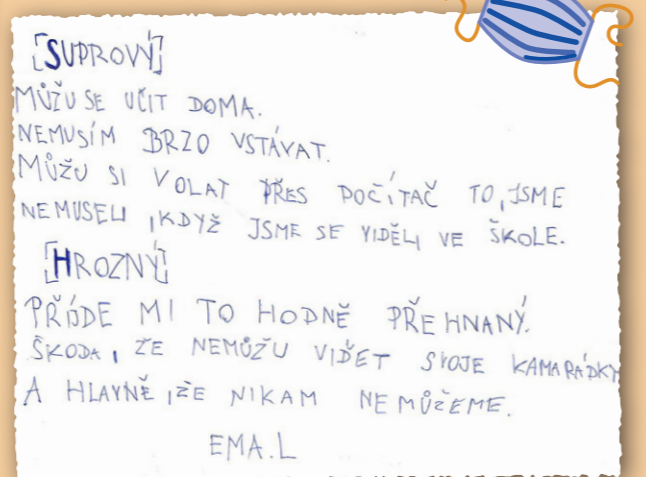 [SUPROVÝ]
MŮŽU SE UČIT DOMA.
NEMUSÍM BRZO VSTÁVAT.
MŮŽU SI VOLAT PŘES POČÍTAČ TO, JSME
NEMUSELI, KDYŽ JSME SE VIDĚLI VE ŠKOLE.
[HROZNÝ]
PŘÍJDE MI TO HODNĚ PŘEHNANÝ.
ŠKODA, ŽE NEMŮŽU VIDĚT SVOJE KAMARÁDKY
A HLAVNĚ, ŽE NIKAM NEMŮŽEME.
EMA.L